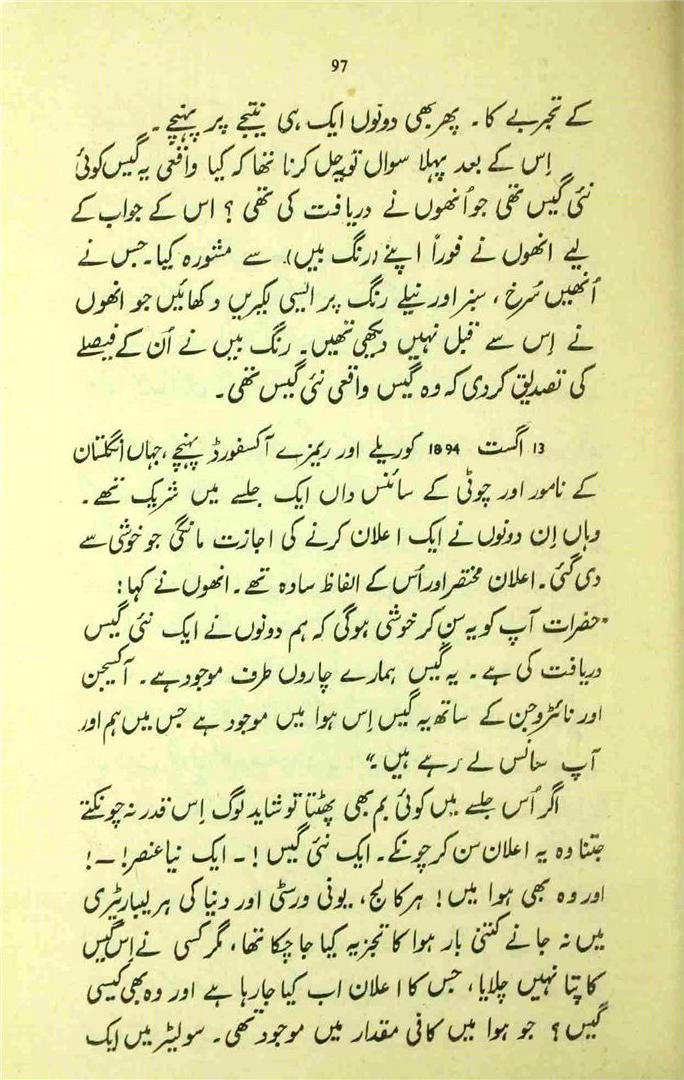 97
کے تجربے کا۔ پھر بھی دونوں ایک ہی نتیجے پر پہنچے۔
اِس کے بعد پہلا سوال تو یہ حل کرنا تھا کہ کیا واقعی یہ گیس کوئی
نئی گیس تھی جو اُنھوں نے دریافت کی تھی؟ اس کے جواب کے
لیے انھوں نے فوراً اپنے (رنگ بیں) سے مشورہ کیا۔ جس نے
اُنھیں سُرخ، سبز اور نیلے رنگ پر ایسی لکیریں دکھائیں جو انھوں
نے اِس سے قبل نہیں دیکھی تھیں۔ رنگ بیں نے اُن کے فیصلے
کی تصدیق کردی کہ وہ گیس واقعی نئی گیس تھی۔
13 اگست 1894 کوریلے اور ریمزے آکسفورڈ پہنچے، جہاں انگلستان
کے نامور اور چوٹی کے سائنس داں ایک جلسے میں شریک تھے۔
وہاں اِن دونوں نے ایک اعلان کرنے کی اجازت مانگی جو خوشی سے
دی گئی۔ اعلان مختصر اور اُس کے الفاظ سادہ تھے۔ انھوں نے کہا:
"حضرات آپ کو یہ سن کر خوشی ہوگی کہ ہم دونوں نے ایک نئی گیس
دریافت کی ہے۔ یہ گیس ہمارے چاروں طرف موجود ہے۔ آکسیجن
اور نائٹروجن کے ساتھ یہ گیس اِس ہوا میں موجود ہے جس میں ہم اور
آپ سانس لے رہے ہیں۔"
اگر اُس جلسے میں کوئی بم بھی پھٹتا تو شاید لوگ اِس قدر نہ چونکتے
جتنا وہ یہ اعلان سن کر چونکے۔ ایک نئی گیس!۔ ایک نیا عنصر!۔!
اور وہ بھی ہوا میں! ہر کالج، یونی ورسٹی اور دنیا کی ہر لیبارٹیری
میں نہ جانے کتنی بار ہوا کا تجزیہ کیا جا چکا تھا، مگر کسی نے اِس گیس
کا پتا نہیں چلایا، جس کا اعلان اب کیا جارہا ہے اور وہ بھی کیسی
گیس؟ جو ہوا میں کافی مقدار میں موجود تھی۔ سولیٹر میں ایک